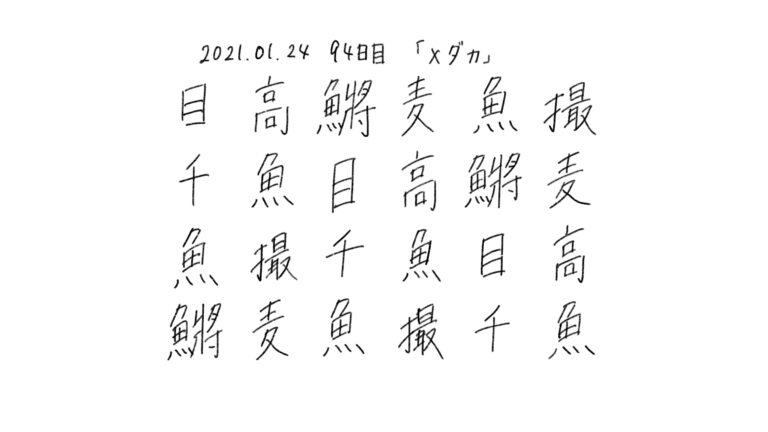 2021.01.24 94日目 「メダカ」
目高鱂麦魚撮
千魚目高鱂麦
魚撮千魚目高
鱂麦魚撮千魚